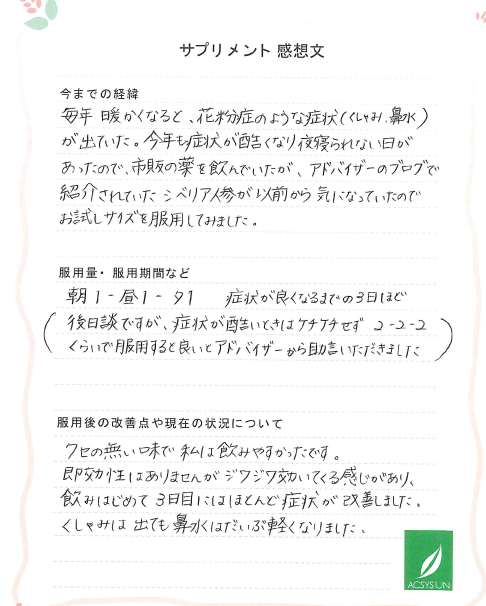 サプリメント 感想文
今までの経緯
毎年 暖かくなると、花粉症のような症状(くしゃみ、鼻水)
が出ていた。今年も症状が酷くなり夜寝られない日が
あったので、市販の薬を飲んでいたが、アドバイザーのブログで
紹介されていた シベリア人参が以前から気になっていたので
お試しサイズを服用してみました。
服用量・服用期間など
朝1-昼1-夕1 症状が良くなるまでの3日ほど
(後日談ですが、症状が酷いときはケチケチせず 2-2-2
くらいで服用すると良いとアドバイザーから助言いただきました)
服用後の改善点や現在の状況について
クセの無い味で 私は飲みやすかったです。
即効性はありませんがジワジワ効いてくる感じがあり、
飲みはじめて 3日目にはほとんど症状が改善しました。
くしゃみは出ても鼻水はだいぶ軽くなりました。
ACSYSUN